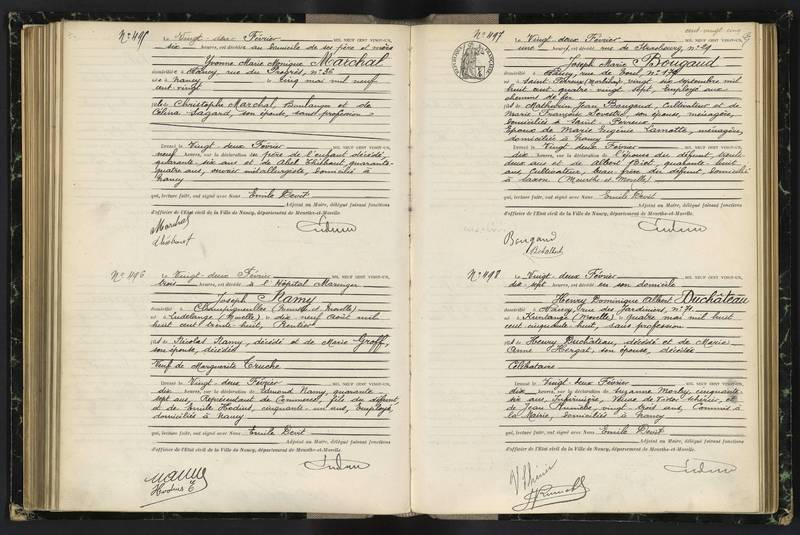 N° 495
Le Vingt deux Février MIL NEUF CENT VINGT-UN,
six heures, est décédée au domicile de ses père et mère
Yvonne Marie Monique Marchal
domiciliée à Nancy, rue du Progrès, n° 36
née à Nancy le cinq mai mil neuf
cent vingt
fille de Christophe Marchal, Boulanger et de
Célina Sagard, son épouse, sans profession
Dressé le Vingt deux Février MIL NEUF CENT VINGT-UN,
neuf heures, sur la déclaration du père de l'enfant décédé,
quarante six ans et de Abel Thiébaut, quarante-
quatre ans, ouvrier métallurgiste, domicilié à
Nancy
qui, lecture faite, ont signé avec Nous Emile Devit
Adjoint au Maire, délégué faisant fonctions
d'officier de l'Etat civil de la Ville de Nancy, département de Meurthe-et-Moselle.
Marchal
Thiébaut
N° 496
Le Vingt-deux Février MIL NEUF CENT VINGT-UN,
trois heures, est décédé à l'Hôpital Maringer
Joseph Namy
domicilié à Champigneulles (Meurthe et Moselle)
né à Ludelange (Moselle) le dix neuf août mil
huit cent trente huit, Rentier
fils de Nicolas Namy, décédé et de Marie Groff,
son épouse, décédée
Veuf de Marguerite Cruche
Dressé le Vingt-deux Février MIL NEUF CENT VINGT-UN,
dix heures, sur la déclaration de Edmond Namy, quarante
sept ans, Représentant de Commerce, fils du défunt,
et de Emile Hodius, cinquante un ans, Employé,
domiciliés à Nancy
qui, lecture faite, ont signé avec Nous Emile Devit
Adjoint au Maire, délégué faisant fonctions
d'officier de l'Etat civil de la Ville de Nancy, département de Meurthe-et-Moselle.
Namy
Hodius E
cent-vingt cinq
N° 497
Le Vingt deux Février MIL NEUF CENT VINGT-UN,
une heure, est décédé rue de Strasbourg, n° 29
Joseph Marie Bougaud
domicilié à Nancy, rue de Toul, n° 179
né à Saint Perreux (Morbihan) le vingt six septembre mil
huit cent quatre vingt sept, Employé aux
chemins de fer
fils de Mathurin Jean Bougaud, Cultivateur et de
Marie Françoise Sevestre, son épouse, ménagère,
domiciliés à Saint-Perreux
Epoux de Marie Eugénie Lamotte, ménagère,
domiciliée à Nancy
Dressé le Vingt deux Février MIL NEUF CENT VINGT-UN,
dix heures, sur la déclaration de l'épouse du défunt, trente
deux ans et de Albert Biot, quarante huit
ans, Cultivateur, beau frère du défunt, domicilié
à Saxon (Meurthe et Moselle)
qui, lecture faite, ont signé avec Nous Emile Devit
Adjoint au Maire, délégué faisant fonctions
d'officier de l'Etat civil de la Ville de Nancy, département de Meurthe-et-Moselle.
Bougaud
N° 498
Le Vingt deux Février MIL NEUF CENT VINGT-UN,
dix sept heures, est décédé en son domicile
Henry Dominique Albert Duchâteau
domicilié à Nancy, rue des Jardiniers, n° 71
né à Kuntange (Moselle) le Quatre mai mil huit
cent cinquante huit, sans profession
fils de Henry Duchâteau, décédé et de Marie
Anne Hergat, son épouse, décédée
Célibataire
Dressé le Vingt-deux Février MIL NEUF CENT VINGT-UN,
dix heures, sur la déclaration de Suzanne Morley, cinquante
six ans, Infirmière, Veuve de Victor Scherier, et
de Jean Kunnels, vingt trois ans, Commis à
la Mairie, domiciliés à Nancy
qui, lecture faite, ont signé avec Nous Emile Devit
Adjoint au Maire, délégué faisant fonctions
d'officier de l'Etat civil de la Ville de Nancy, département de Meurthe-et-Moselle.